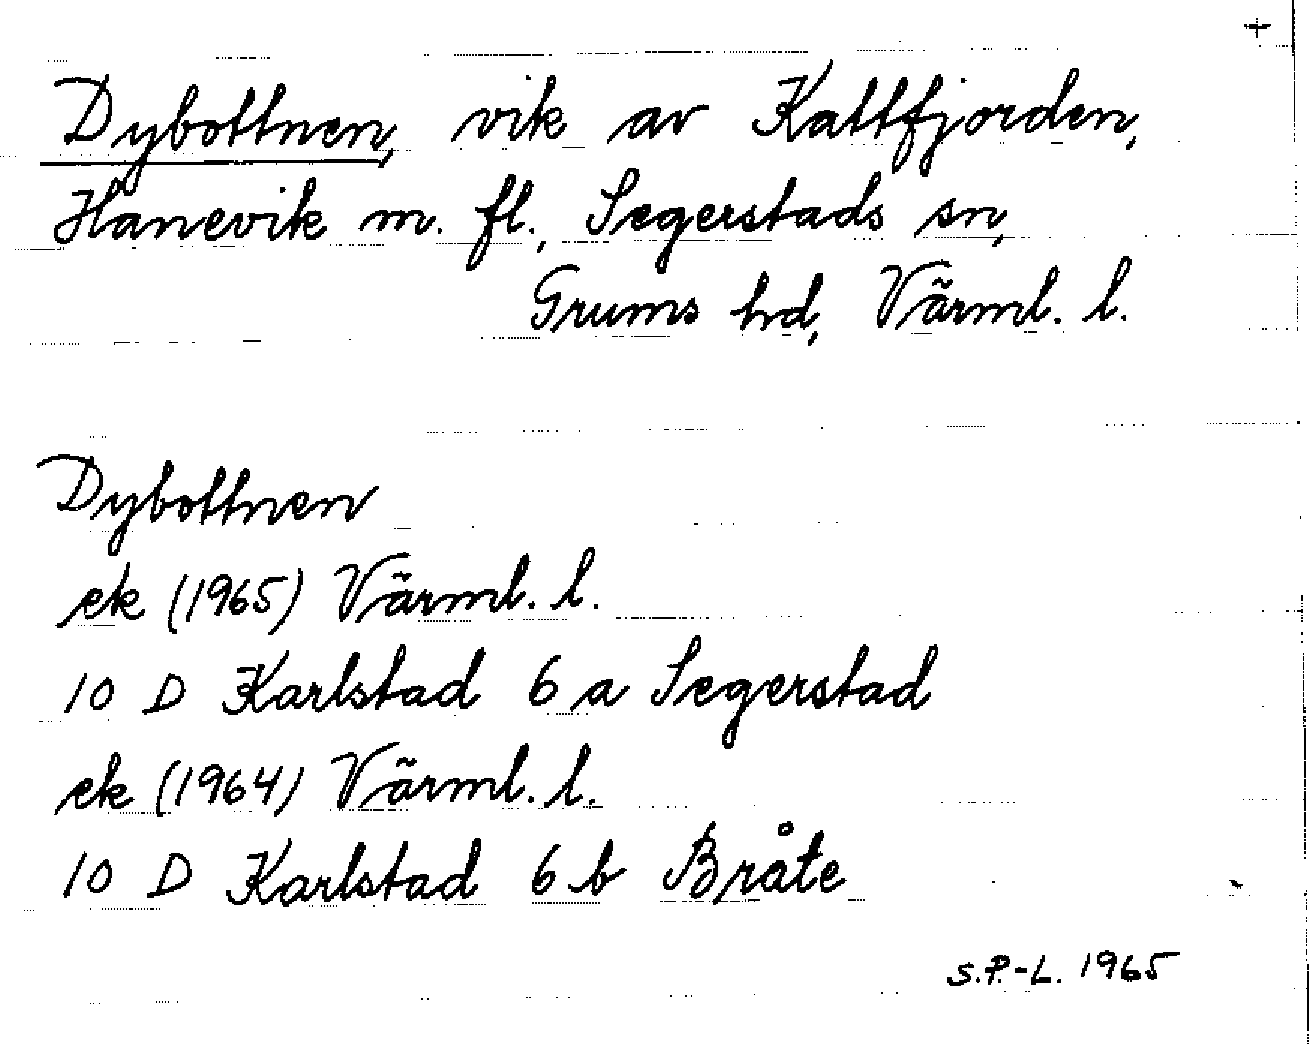 +
Dybottnen, vik av Kattfjorden,
Hanevik m. fl., Segerstads sn,
Grums hd, Värml. l.
Dybottnen
ek (1965) Värml. l.
10 D Karlstad 6 a Segerstad
ek (1964) Värml. l.
10 D Karlstad 6 b Bråte
S.P.-L. 1965